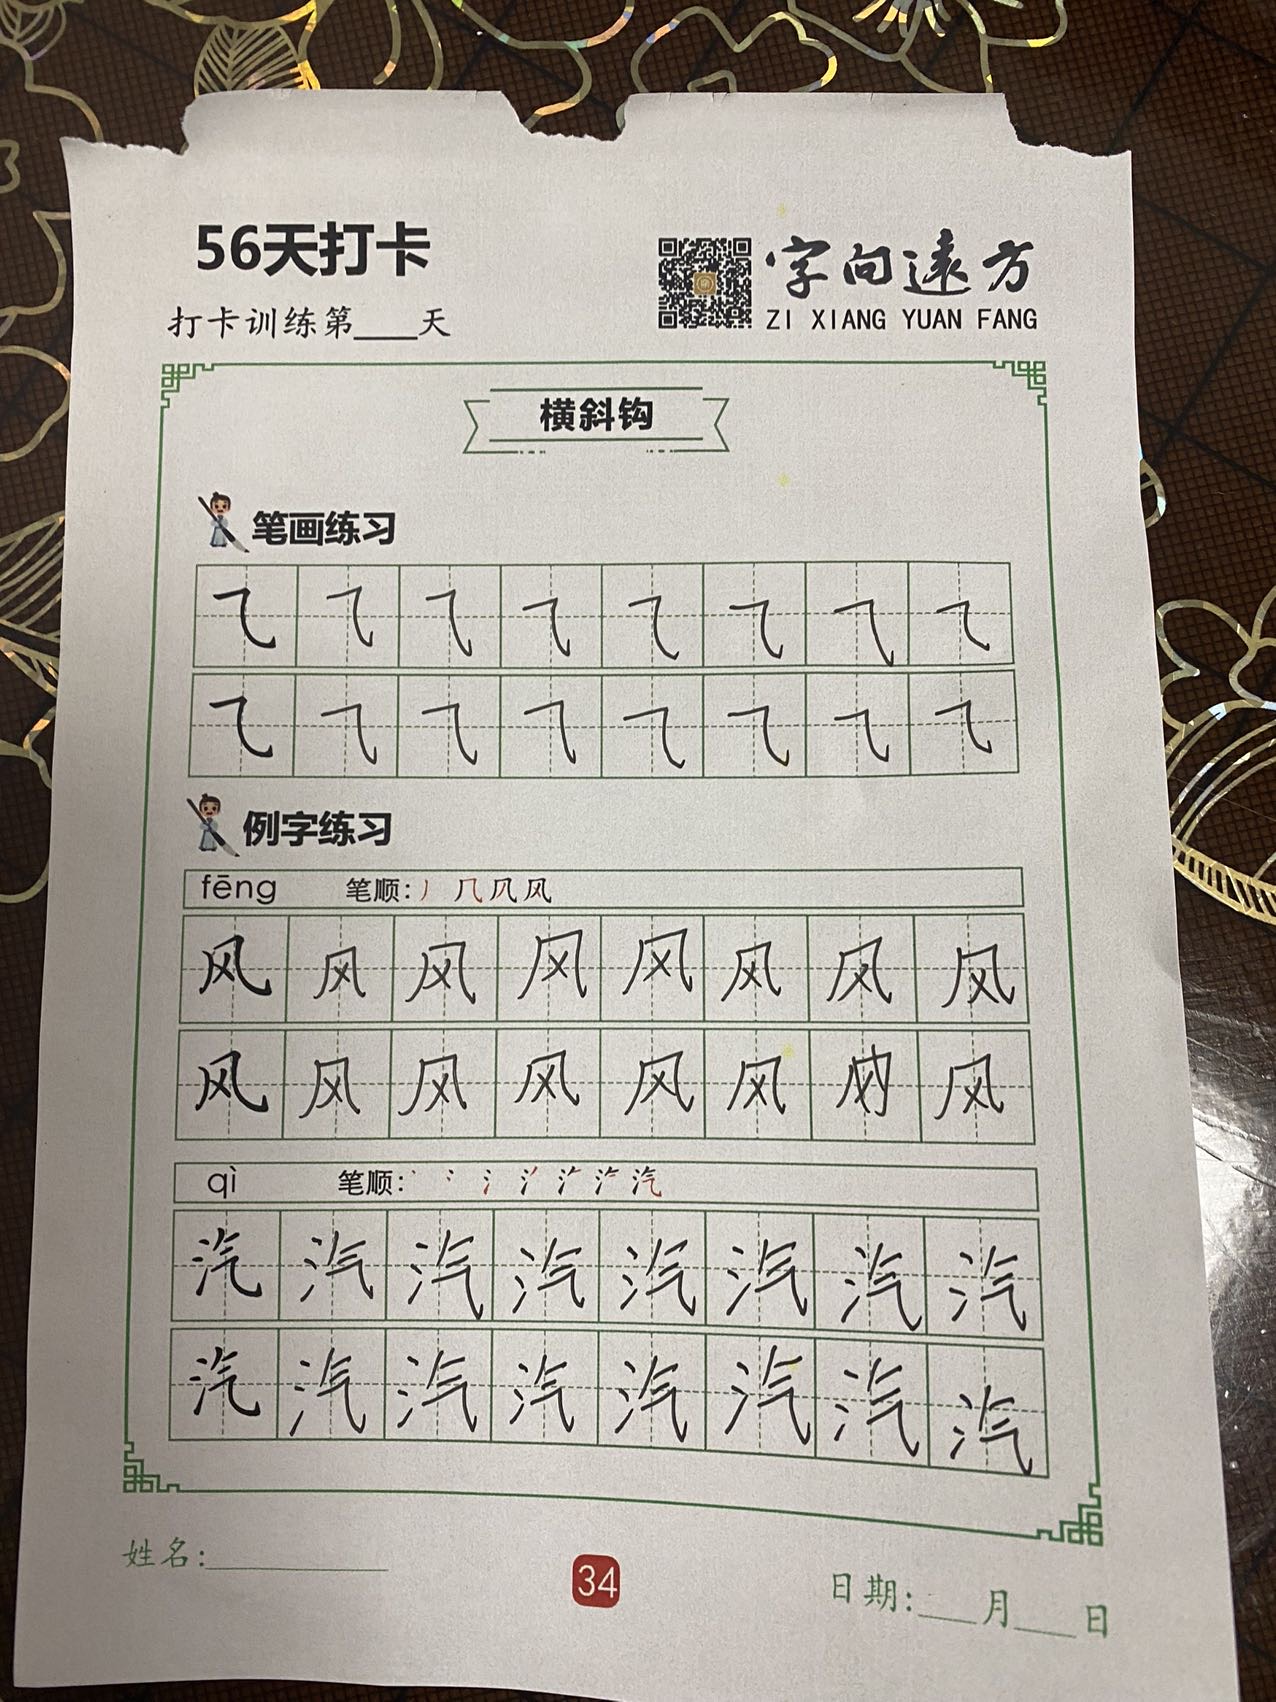 56天打卡
打卡训练第___天
字向遠方
ZI XIANG YUAN FANG
横斜钩
笔画练习
㇈ ㇈ ㇈ ㇈ ㇈ ㇈ ㇈ ㇈
㇈ ㇈ ㇈ ㇈ ㇈ ㇈ ㇈ ㇈
例字练习
fēng 笔顺:丿 几 风
风 风 风 风 风 风 风 风
风 风 风 风 风 风 风
qì 笔顺: 氵 汽
汽 汽 汽 汽 汽 汽 汽 汽
汽 汽 汽 汽 汽 汽 汽 汽
姓名:
34
日期:___月___日